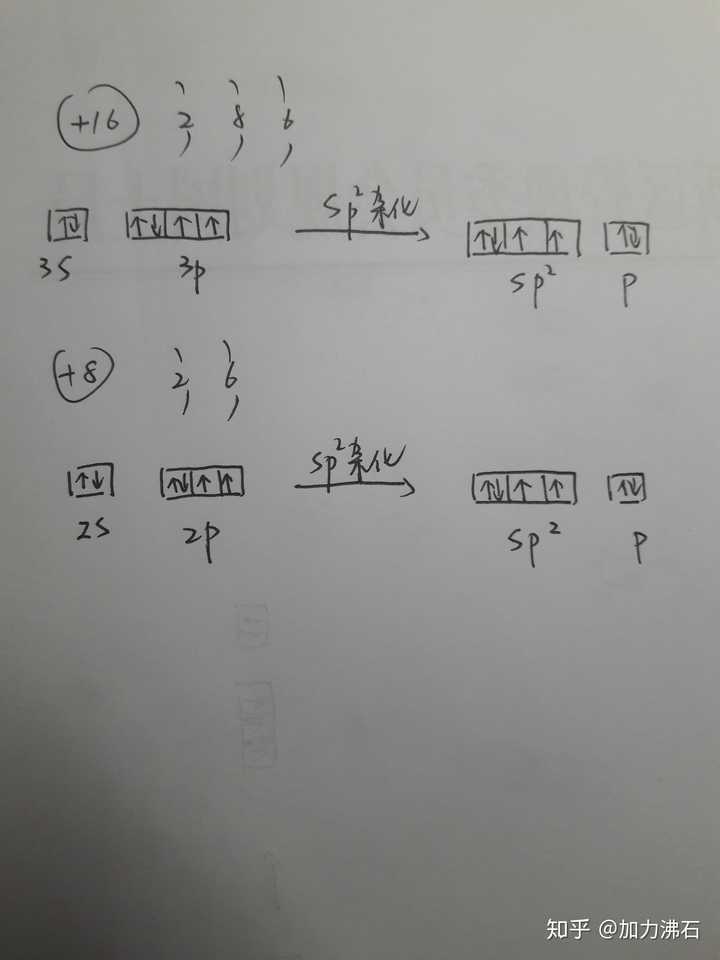 +16 2 8 6
↑↓ ↑↓ ↑ ↑ sp²杂化 ↑↓ ↑ ↑ ↑↓
3s 3p sp² p
+8 2 6
↑↓ ↑↓ ↑ ↑ sp²杂化 ↑↓ ↑ ↑ ↑↓
2s 2p sp² p
知乎 @加力沸石